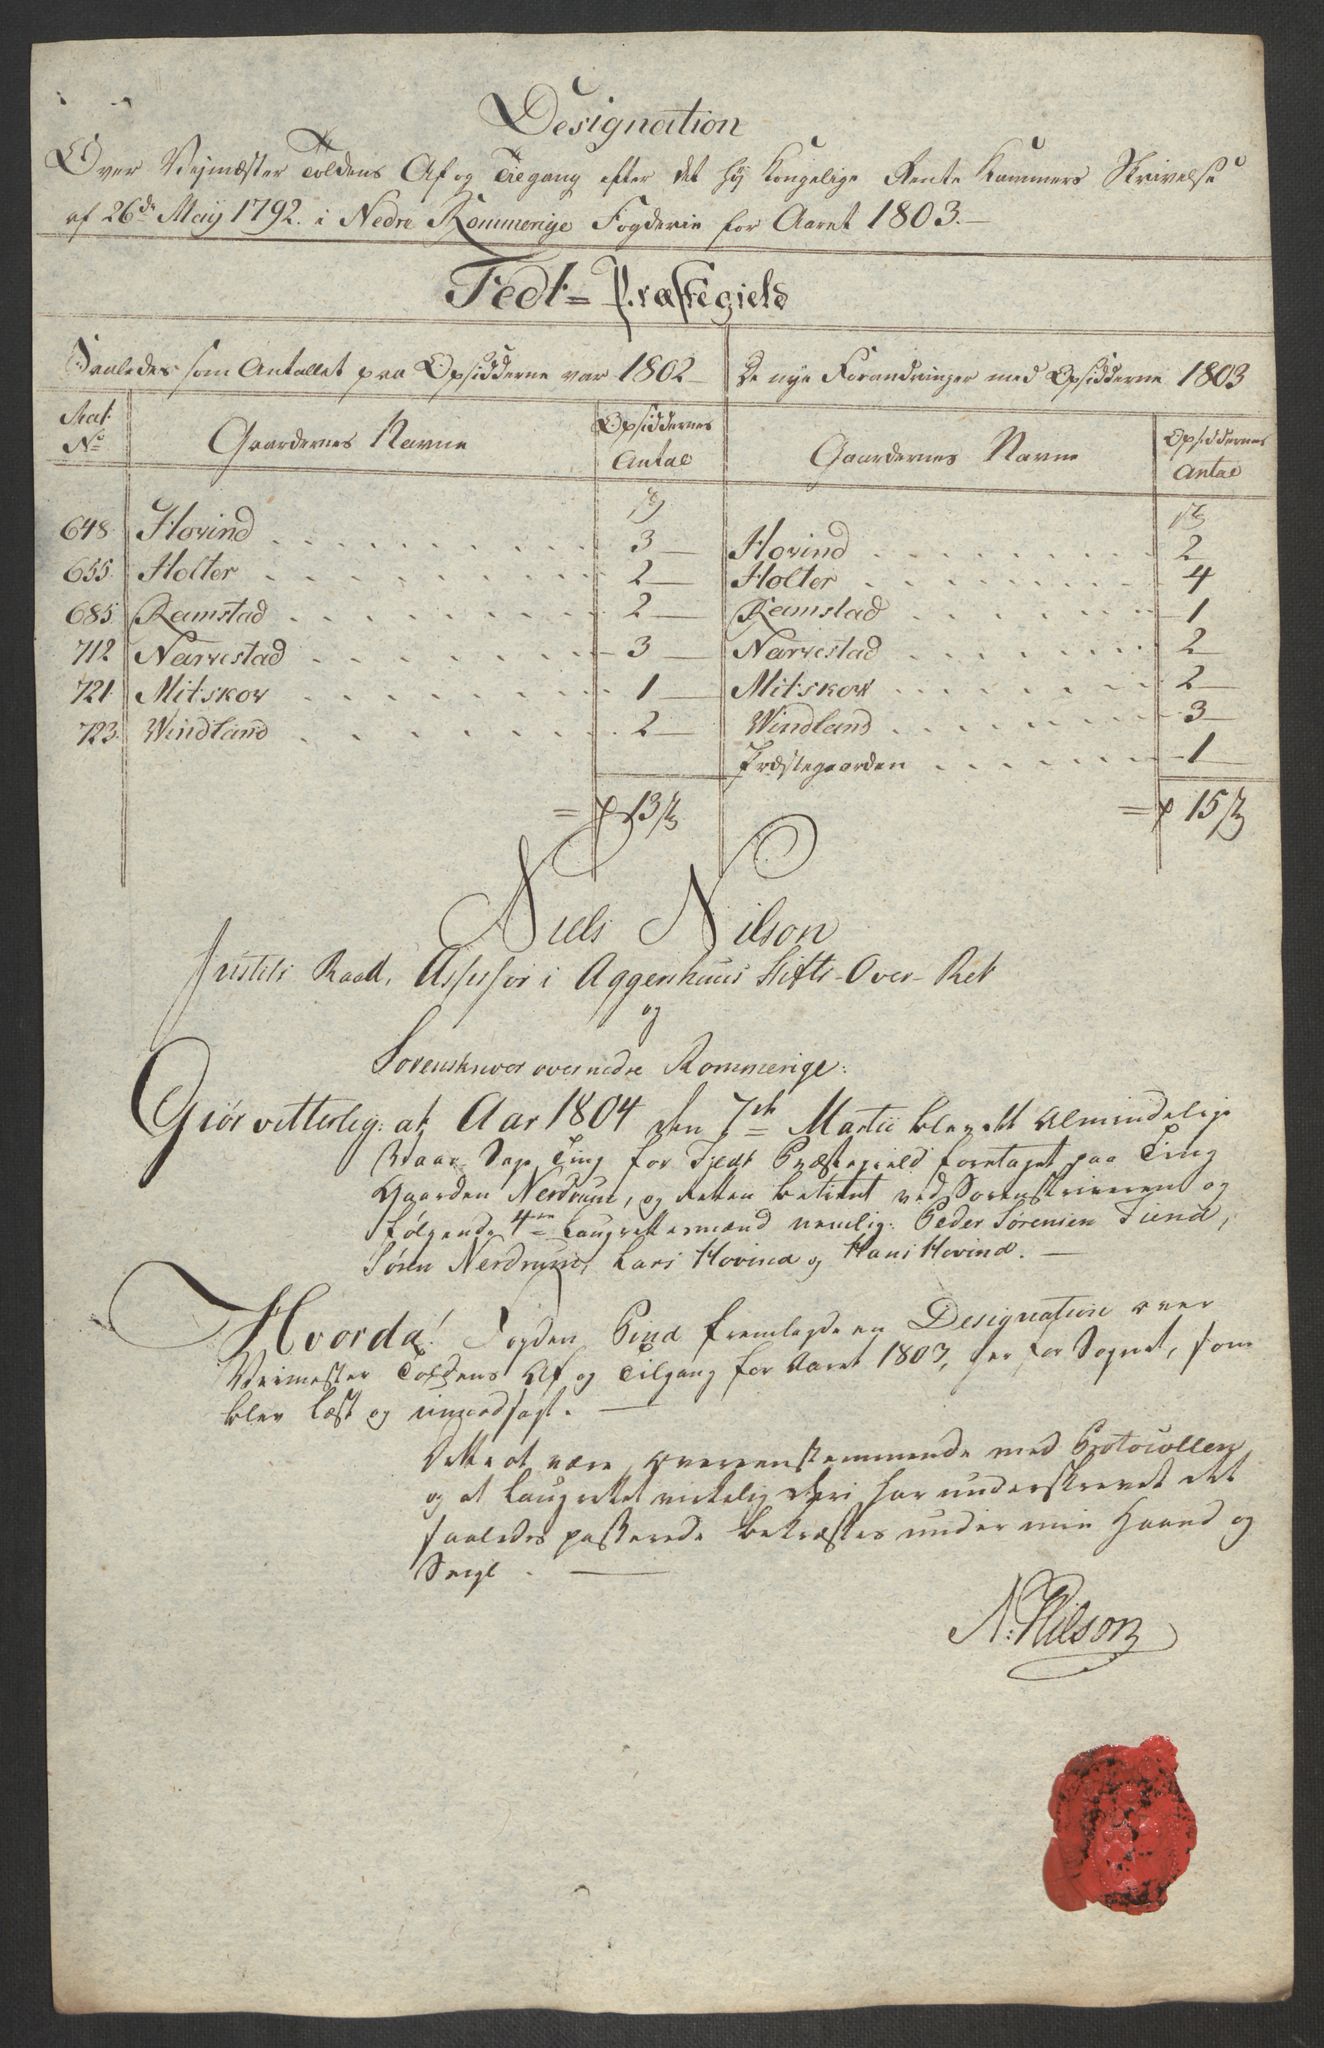 Designation
Over Vejmæster Toldens Af og Tilgang efter det høy Kongelige Rente Kammers Skrivelse
af 26de May 1792. i Nedre Rommerige Fogderie for Aaret 1803.
Fedt= Præstegield
Saaledes som Antallet paa Opsidderne var 1802
De nye Forandringer med Opsidderne 1803
Mat: No
Gaardernes Navne
Opsiddernes Antal
Gaardernes Navne
Opsiddernes Antal
648. Hovind 3 Hovind 2
655. Holter 2 Holter 4
685. Ramstad 2 Ramstad 1
712 Narvestad 3 Narvestad 2
721. Mitskov 1 Mitskov 2
723. Windland 2 Windland 3
Præstegaarden 1
= 13 = 15
Niels Nilson
Justits Raad, Assessor i Aggershuus Stifts-Over-Ret
og
Sorenskriver over nedre Rommerige:
Giör vitterlig: at Aar 1804 den 7de Martii blev det Almindelige
Vaar Sage Ting for Fedt Præstegield foretaget paa Ting
Gaarden Nerdrum, og Retten betient ved Sorenskriveren og
følgende 4re Laugrettesmænd nemlig: Peder Sørensen Tiend,
Søren Nerdrum, Lars Hovind og Hans Hovind.
Hvorda! Fogden Pind fremlagde en Designation over
Veimester Toldens Af og Tilgang for Aaret 1803, her for Sognet, som
blev læst og uimodsagt.
Dette at være overeenstemmende med Protocollen,
og at Laugrettet virkelig deri har underskrevet det
saaledes passerede bekræftes under min Haand og
Seigl.
N: Nilson